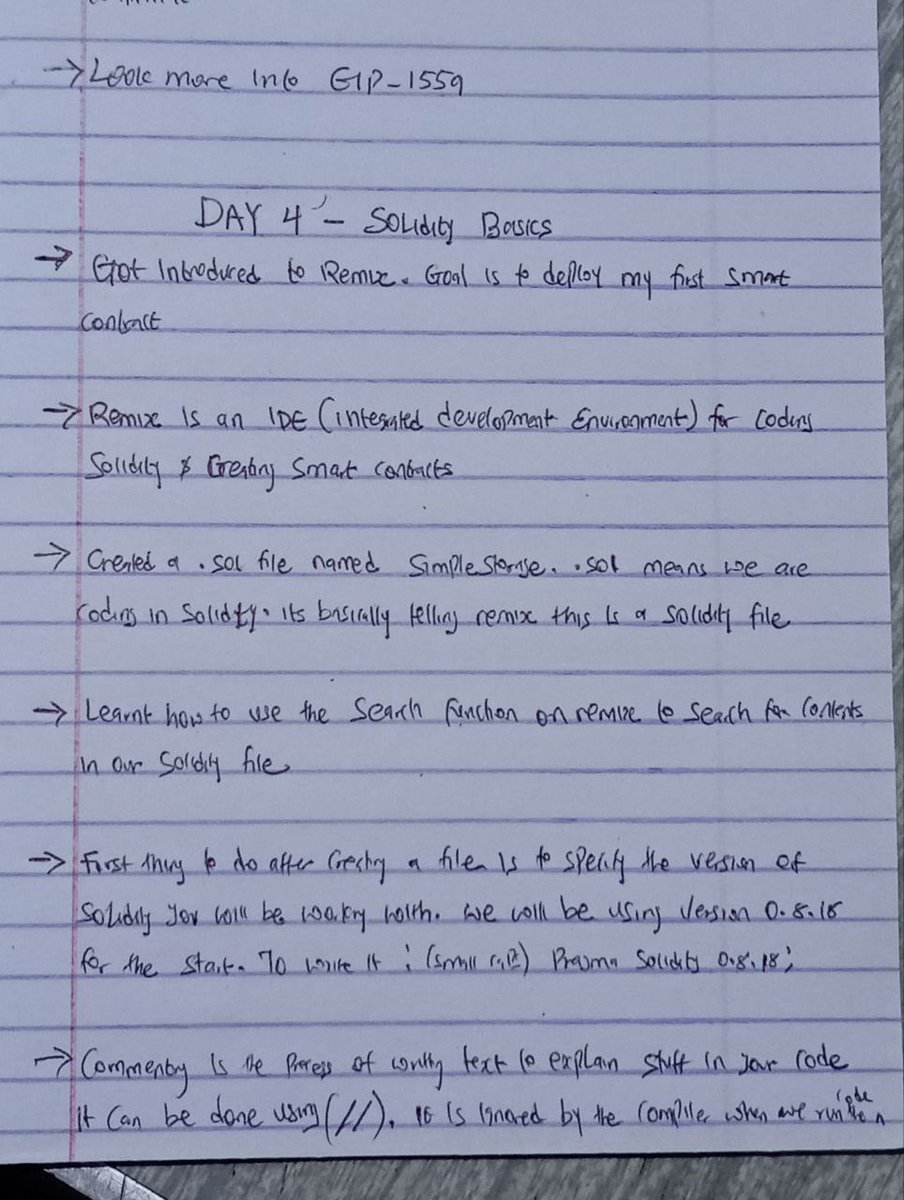 → Look more into EIP-1559
DAY 4 - Solidity Basics
→ Got Introduced to Remix. Goal is to deploy my first smart
contract
→ Remix is an IDE (integrated development Environment) for coding
Solidity & Creating Smart contracts
→ Created a .sol file named SimpleStorage. .sol means we are
coding in Solidity. its basically telling remix this is a solidity file
→ Learnt how to use the Search function on remix to Search for Contents
in our Solidity file
→ First thing to do after Creating a file is to specify the version of
Solidity you will be working with. we will be using version 0.8.18
for the start. To write it : (small) Pragma Solidity 0.8.18;
→ Commenting is the Process of writing text to explain stuff in your code
it can be done using (//). it is ignored by the compiler when we run code